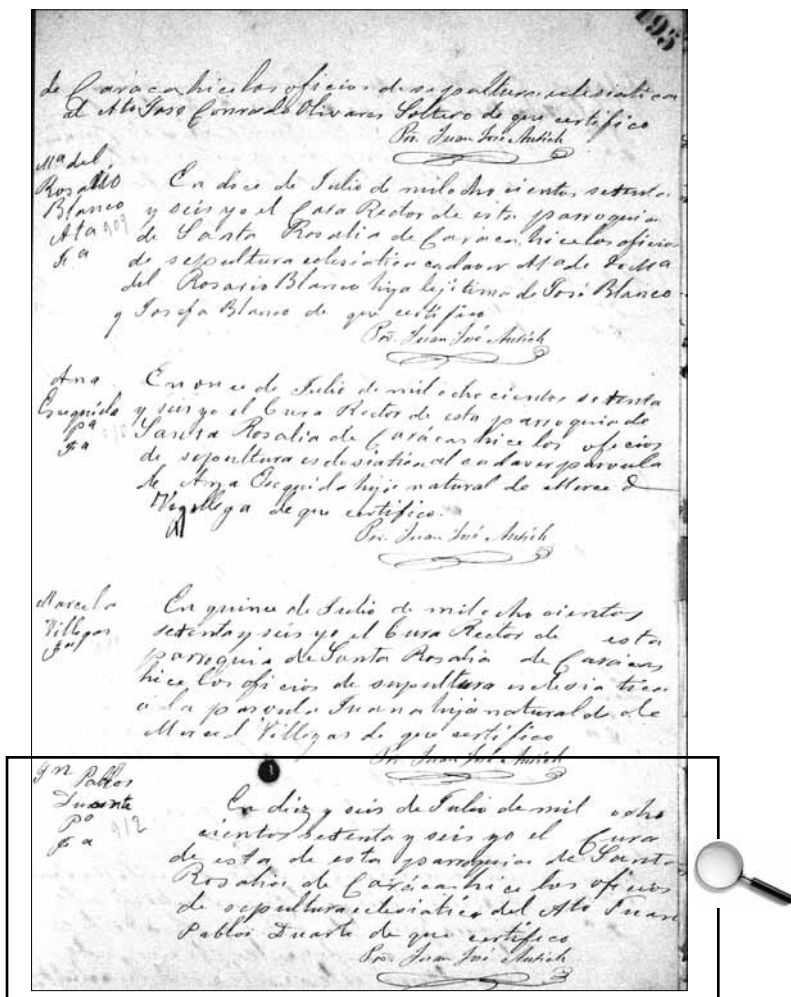 195
de Carácas hice los oficios de sepultura eclesiatica
al Ato José Conrado Olivares Soltero de que certifico
Pro. Juan José Autich
Ma del
Rosario
Blanco
Ata 909
En doce de Julio de mil ocho cientos setenta
y seis yo el Cura Rector de esta parroquia
de Santa Rosalia de Carácas hice los oficios
de sepultura eclesiatica cadaver Ata de
del Rosario Blanco hija lejitima de José Blanco
y Josefa Blanco de que certifico
Pro. Juan José Autich
Ana
Pa
En once de Julio de mil ocho cientos setenta
y seis yo el Cura Rector de esta parroquia de
Santa Rosalia de Carácas hice los oficios
de sepultura al cadaver parvula
de Ana hija natural de
de que certifico.
Pro. Juan José Autich
Marcela
Villegas
En quince de Julio de mil ocho cientos
setenta y seis yo el Cura Rector de esta
parroquia de Santa Rosalia de Carácas
hice los oficios de sepultura eclesia tica
a la parvula Juana hija natural de
Merced Villegas de que certifico
Pro. Juan José Autich
Jn Pablos
Duarte
Po
912
En diez y seis de Julio de mil ocho
cientos setenta y seis yo el Cura
de esta de esta parroquia de Santa
Rosalia de Carácas hice los oficios
de sepultura eclesiatica del Ato Juan
Pablos Duarte de que certifico
Pro. Juan José Autich